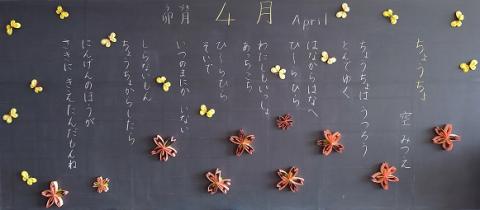 4月 April
ちょうちょ
空 みつえ
ちょうちょは うつろう
とんでゆく
はなからはなへ
ひーらひら
わたしもいっしょ
あちこち
ひーらひら
そいで
いつのまにか いない
しらないもん
ちょうちょからしたら
にんげんのほうが
さきに きえたんだもんね